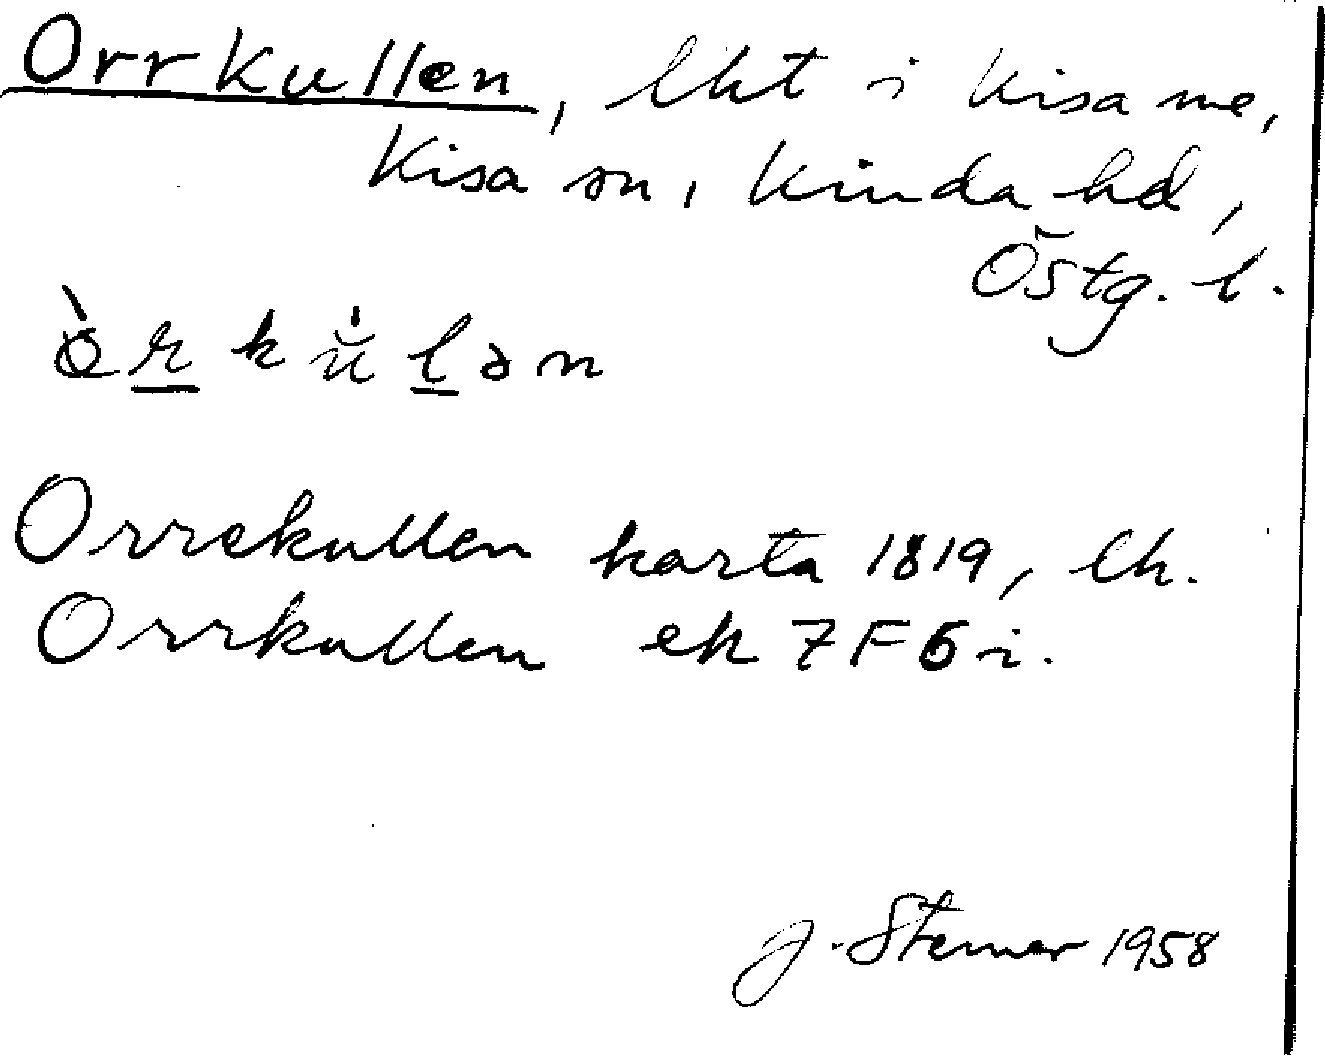 Orrkullen, lht i Kisa me,
Kisa sn, Kinda hd,
Östg. l.
Orrekullen karta 1819, lh.
Orrkullen ek 7F6i.
J. Sterner 1958